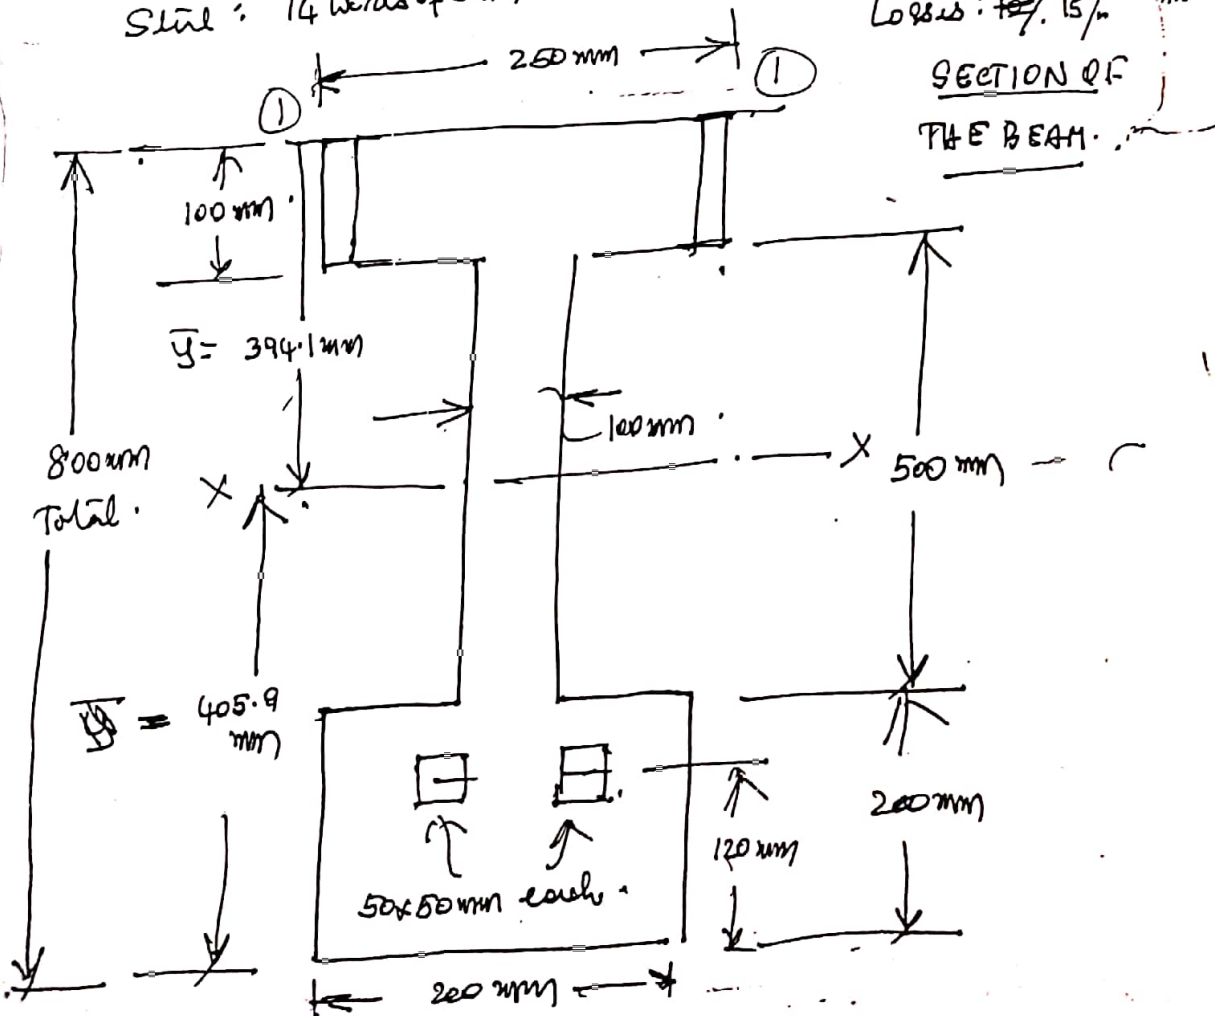 Steel : 14
Losses : 15%
250 mm
SECTION OF
THE BEAM.
1 1
100 mm
y = 394.1 mm
100 mm
800 mm
Total.
X X
500 mm
405.9
mm
200 mm
120 mm
50x50 mm each.
200 mm